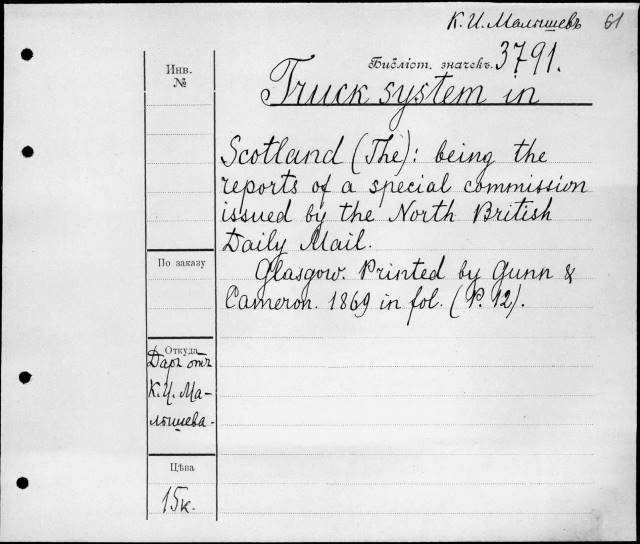 К. И. Малышевъ 61
Библіот. значекъ. 3791.
Инв.
№
Truck system in
Scotland (The): being the
reports of a special commission
issued by the North British
Daily Mail.
Glasgow. Printed by Gunn &
Cameron. 1869 in fol. (P. 12).
По заказу
Откуда
Даръ отъ
К. И. Ма-
лышева.
Цѣна
15к.